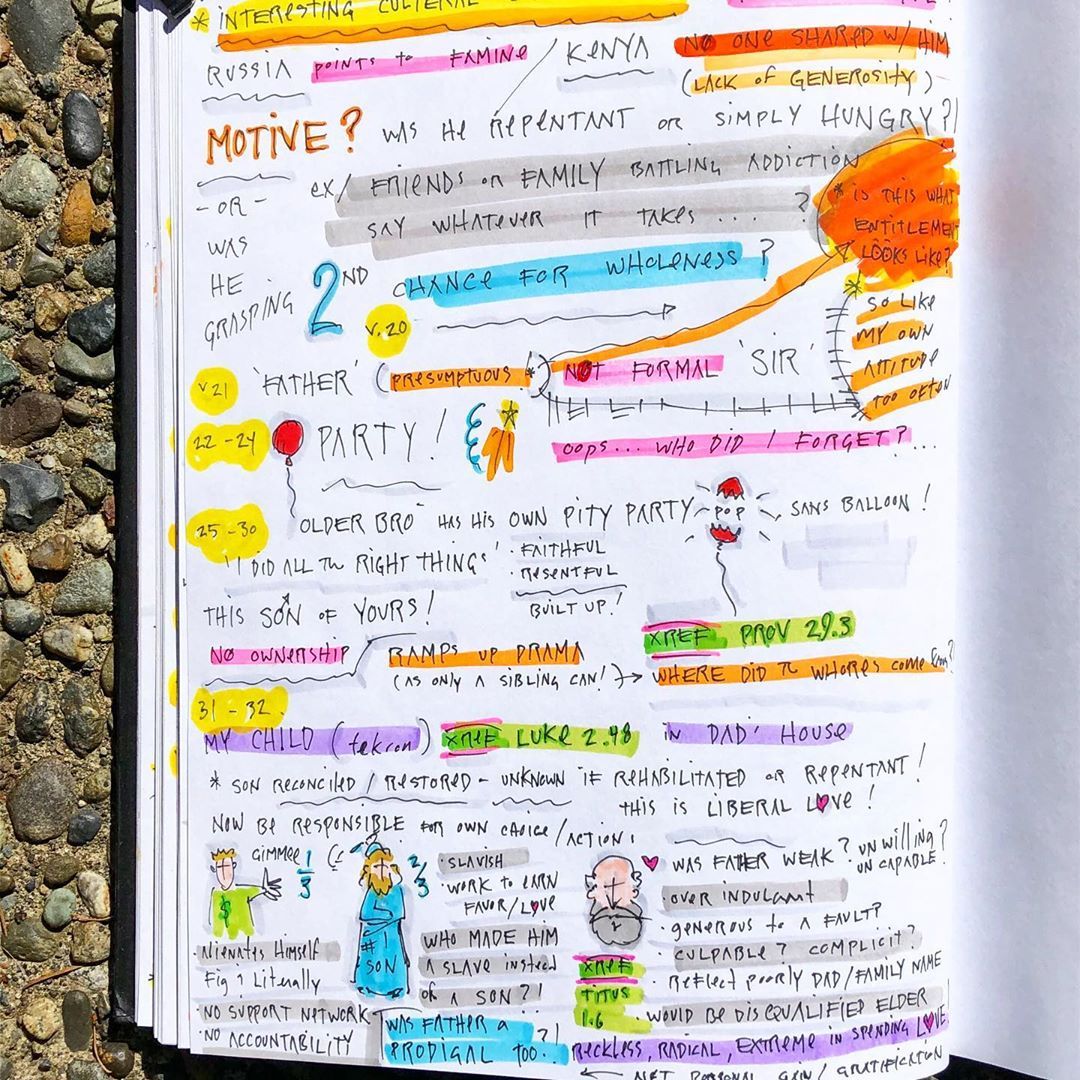 * INTERESTING CULTURAL
RUSSIA POINTS to FAMINE / KENYA NO ONE SHARED W/ HIM
(LACK OF GENEROSITY)
MOTIVE? WAS HE REPENTANT OR SIMPLY HUNGRY?!
ex/ FRIENDS OR FAMILY BATTLING ADDICTION
SAY WHATEVER IT TAKES ... ?
* IS THIS WHAT
ENTITLEMENT
LOOKS LIKE?
- OR -
WAS
HE
GRASPING
2ND CHANCE FOR WHOLENESS?
v.20
* SO LIKE
MY OWN
ATTITUDE
TOO OFTEN
v21 'FATHER' (PRESUMPTUOUS *) NOT FORMAL 'SIR'
22-24 PARTY!
OOPS... WHO DID I FORGET?...
25-30 OLDER BRO HAS HIS OWN PITY PARTY POP, SANS BALLOON!
'I DID ALL The RIGHT THINGS'
· FAITHFUL
· RESENTFUL
BUILT UP!
THIS SON OF YOURS!
XREF PROV 29.3
NO OWNERSHIP RAMPS UP DRAMA
(AS ONLY A SIBLING CAN!) → WHERE DID The WHORES COME from?!
31-32
MY CHILD (tekron) XREF LUKE 2.48 in DAD' HOUSE
* SON RECONCILED / RESTORED - UNKNOWN IF REHABILITATED OR REPENTANT!
THIS IS LIBERAL LOVE!
NOW BE RESPONSIBLE FOR OWN CHOICE/ACTION:
GIMMEE 1/3
$
· ALIENATES HIMSELF
Fig & LITERALLY
· NO SUPPORT NETWORK
· NO ACCOUNTABILITY
2/3
#1
SON
· SLAVISH
· WORK to EARN
FAVOR/LOVE
WHO MADE HIM
A SLAVE INSTEAD
OF A SON?!
WAS FATHER A
PRODIGAL TOO?!
WAS FATHER WEAK? UNWILLING?
UNCAPABLE!
· OVER INDULGANT
· GENEROUS TO A FAULT?
· CULPABLE? COMPLICIT?
· REFLECT POORLY DAD/FAMILY NAME
XREF
TITUS
1.6
· WOULD BE DISQUALIFIED ELDER
RECKLESS, RADICAL, EXTREME IN SPENDING LOVE
← NOT PERSONAL GAIN / GRATIFICATION